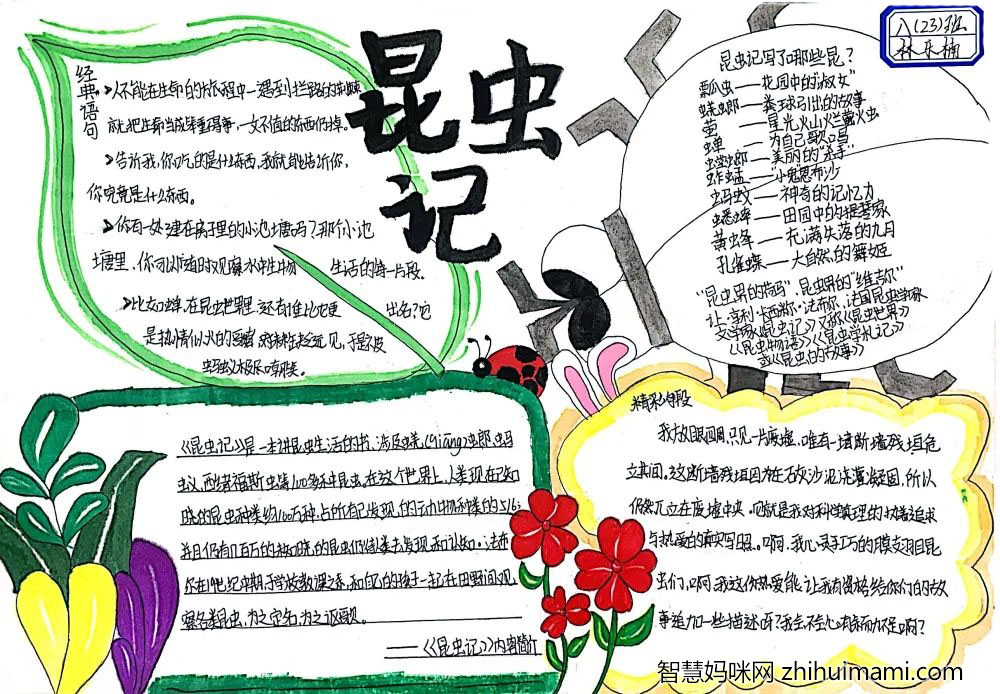 昆虫
记
八(23)班
林乐楠
经典语句
人不能在生命的旅程中一遇到拦路的荆棘
就把生命当成笨重得事,一文不值的东西仍掉。
告诉我,你吃的是什么东西,我就能告诉你,
你究竟是什么东西。
你有一处建在房子里的小池塘吗?那个小池
塘里,你可以随时观察水中生物 生活的每一片段。
比如蝉,在昆虫世界里还有谁比它更 出名?它
是热情似火的
蚂蚁极尽嘲笑。
昆虫记写了哪些昆?
瓢虫——花园中的"淑女"
蜣螂——粪球引出的故事
萤——星光火山烂萤火虫
蝉——为自己歌唱
螳螂——美丽的"杀手"
蚱蜢——"小鬼"恩布沙
蚂蚁——神奇的记忆力
蟋蟀——田园中的提琴家
黄蜂——充满失落的九月
孔雀蝶——大自然的舞姬
"昆虫界的荷马",昆虫界的"维吉尔"
让·亨利·卡西米尔·法布尔,法国昆虫学家
文学家《昆虫记》又称《昆虫世界》
《昆虫物语》《昆虫学札记》
或《昆虫的故事》
《昆虫记》是一本讲昆虫生活的书,涉及蜣(qiang)螂,蚂
蚁,西绪福斯虫等100多种昆虫,在这个世界上,人类现在已知
晓的昆虫种类约100万种,占所有已发现的动物种类的5/6;
并且仍有几百万的种知晓的昆虫仍待人类去发现和认知。法布
尔在19世纪中期于学校教课之余,和自己的孩子一起在田野间观
察各类昆虫,为之定名,为之讴歌。
——《昆虫记》内容简介
精彩片段
我放眼四周,只见一片废墟,唯有一堵断墙残垣危
立其间。这断墙残垣因为在石灰沙泥浇灌凝固,所以
仍然兀立在废墟中央。它就是我对科学真理的执着追求
与热爱的真实写照。啊,我心灵手巧的膜翅目昆
虫们,啊我这份热爱能让我有资格给你们的故
事追加一些描述吗?我会不会心有余而力不足啊?
智慧妈咪网 zhihuimami.com